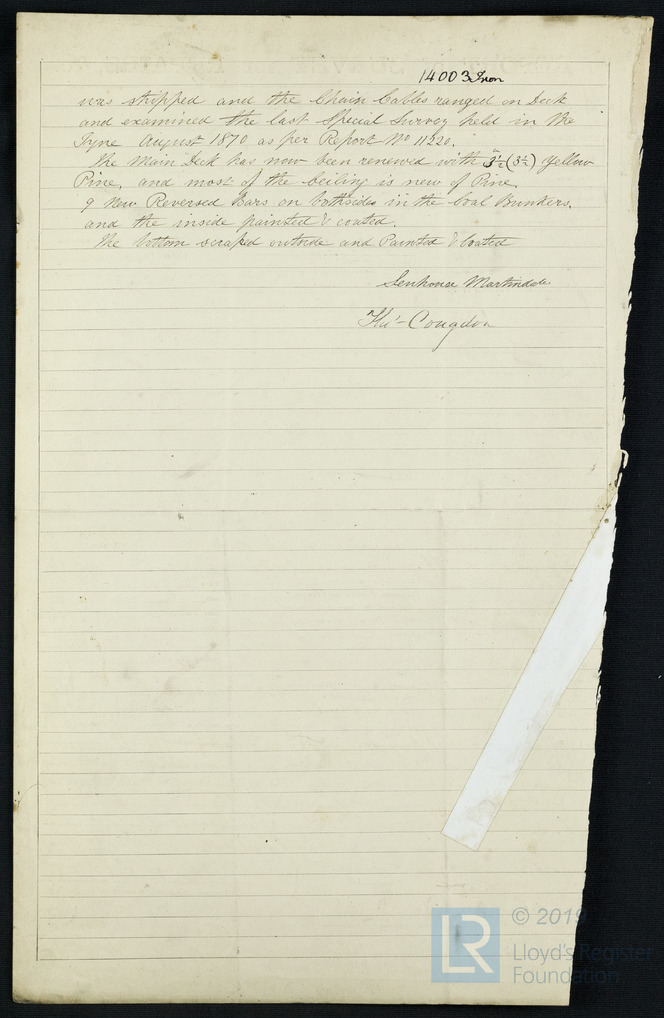 14003 Iron
was stripped and the Chain Cables ranged on Deck
and examined the last Special Survey held in the
Tyne August 1870 as per Report No 11220.
The Main Deck has now been renewed with 3½ (3½) Yellow
Pine, and most of the Ceiling is new of Pine.
9 New Reversed Bars on bothsides in the Coal Bunkers,
and the inside painted & coated.
The bottom scraped outside and Painted & Coated
Senhouse Martindale
Thos Congdon
© 2019
LR
Lloyd's Register
Foundation